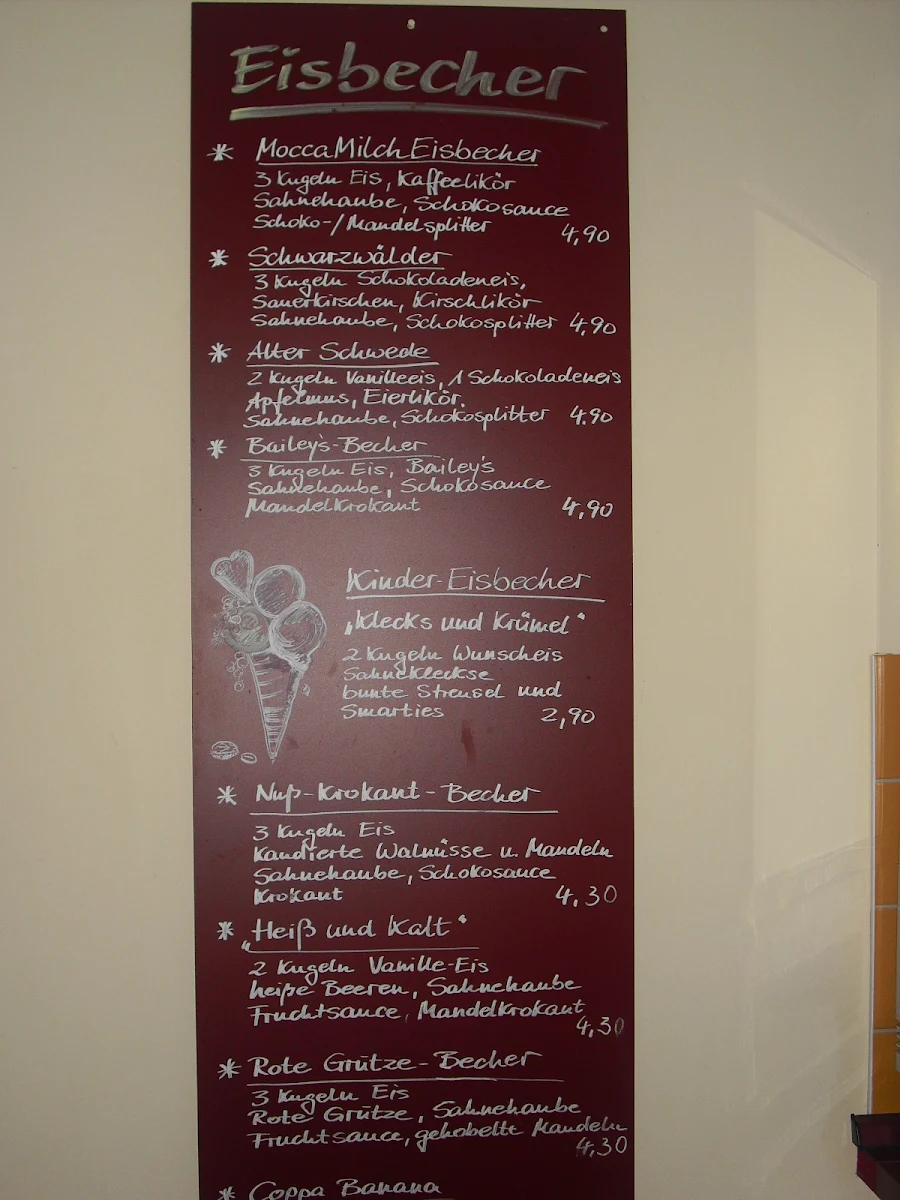 Eisbecher
* MoccaMilchEisbecher
3 Kugeln Eis, Kaffeelikör
Sahnehaube, Schokosauce
Schoko-/Mandelsplitter
4,90
* Schwarzwälder
3 Kugeln Schokoladeneis,
Sauerkirschen, Kirschlikör
Sahnehaube, Schokosplitter 4,90
* Alter Schwede
2 Kugeln Vanilleeis, 1 Schokoladeneis
Apfelmus, Eierlikör.
Sahnehaube, Schokosplitter 4.90
* Bailey's-Becher
3 Kugeln Eis, Bailey's
Sahnehaube, Schokosauce
Mandelkrokant 4,90
Kinder-Eisbecher
„Klecks und Krümel“
2 Kugeln Wunscheis
Sahnekleckse
bunte Streusel und
Smarties 2,90
* Nuß-Krokant-Becher
3 Kugeln Eis
Kandierte Walnüsse u. Mandeln
Sahnehaube, Schokosauce
Krokant 4,30
* „Heiß und Kalt“
2 Kugeln Vanille-Eis
heiße Beeren, Sahnehaube
Fruchtsauce, Mandelkrokant
4,30
* Rote Grütze-Becher
3 Kugeln Eis
Rote Grütze, Sahnehaube
Fruchtsauce, gehobelte Mandeln
4,30
* Coppa Banana